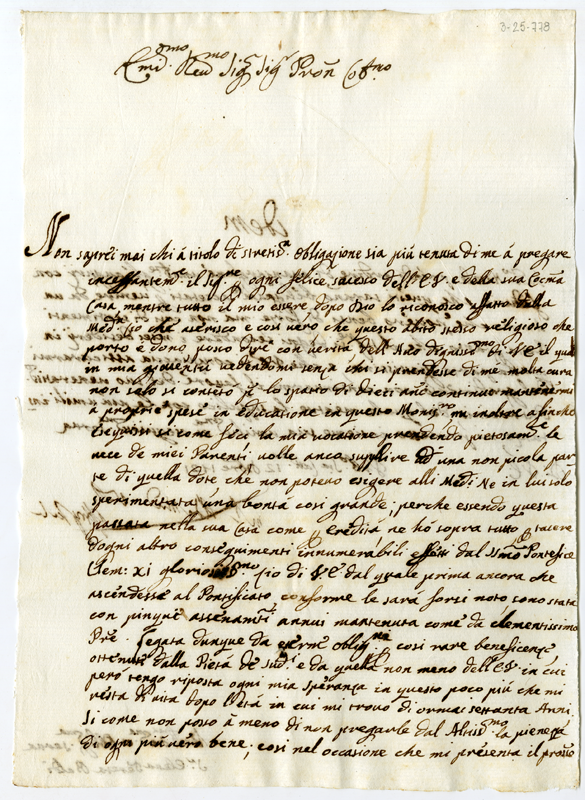 3-25-778
Em.mo Rev.mo Sig.r Sig.r Pron Col.mo
Non saprei mai chi á titolo di stretis.a obligazione sia più tenuta di me á pregare
incessantem.e il Sig.re p ogni felice sucesso dell'E.V. e della sua Ecc.ma
Casa mentre tutto il mio essere dopo Dio lo riconosco affatto della
Med.ma ció che asserisco e cosi vero che questo abito stesso religioso che
porto è dono posso dire con verità dell'Avo digniss.mo di V.E. il quale
in mia gioventù vedendomi senza chi si prendesse di me molta cura
non solo si contentò p lo spatio di dieci anni continui mantenermi
á proprie spese in educatione in questo Monis.ro mà inoltre afinche
eseguissi si come feci la mia vocatione prendendo pietosam.e le
vece de miei Parenti volle anco supplire ad una non picola par-
te di quella dote che non potevo esigere alli Medi. Ne in lui solo
sperimentata una bontà cosi grande; perche essendo questa
passata nella sua Casa come p eredità ne hò sopra tutto p tacere
d'ogni altro conseguimenti innumerabili effetti dal S.mo Pontefice
Clem: XI glorios.mo Zio di V.E. dal quale prima ancora che
ascendesse al Pontificato conforme le sarà forsi noto sono stata
con pingui assenam.ti annui mantenuta come da clementissimo
P.re. Legata dunque da eterne oblig.ni p cosi rare beneficenze
ottenute dalla Pietà de sud.i e da quella non meno dell'E.V. in cui
però tengo riposta ogni mia speranza in questo poco più che mi
resta di vita dopo l'età in cui mi trovo di ormai settanta Anni,
Si come non posso á meno di non pregarle dal Altis.mo la pienezza
di ogni più vero bene; cosi nel occasione che mi presenta il pross.o